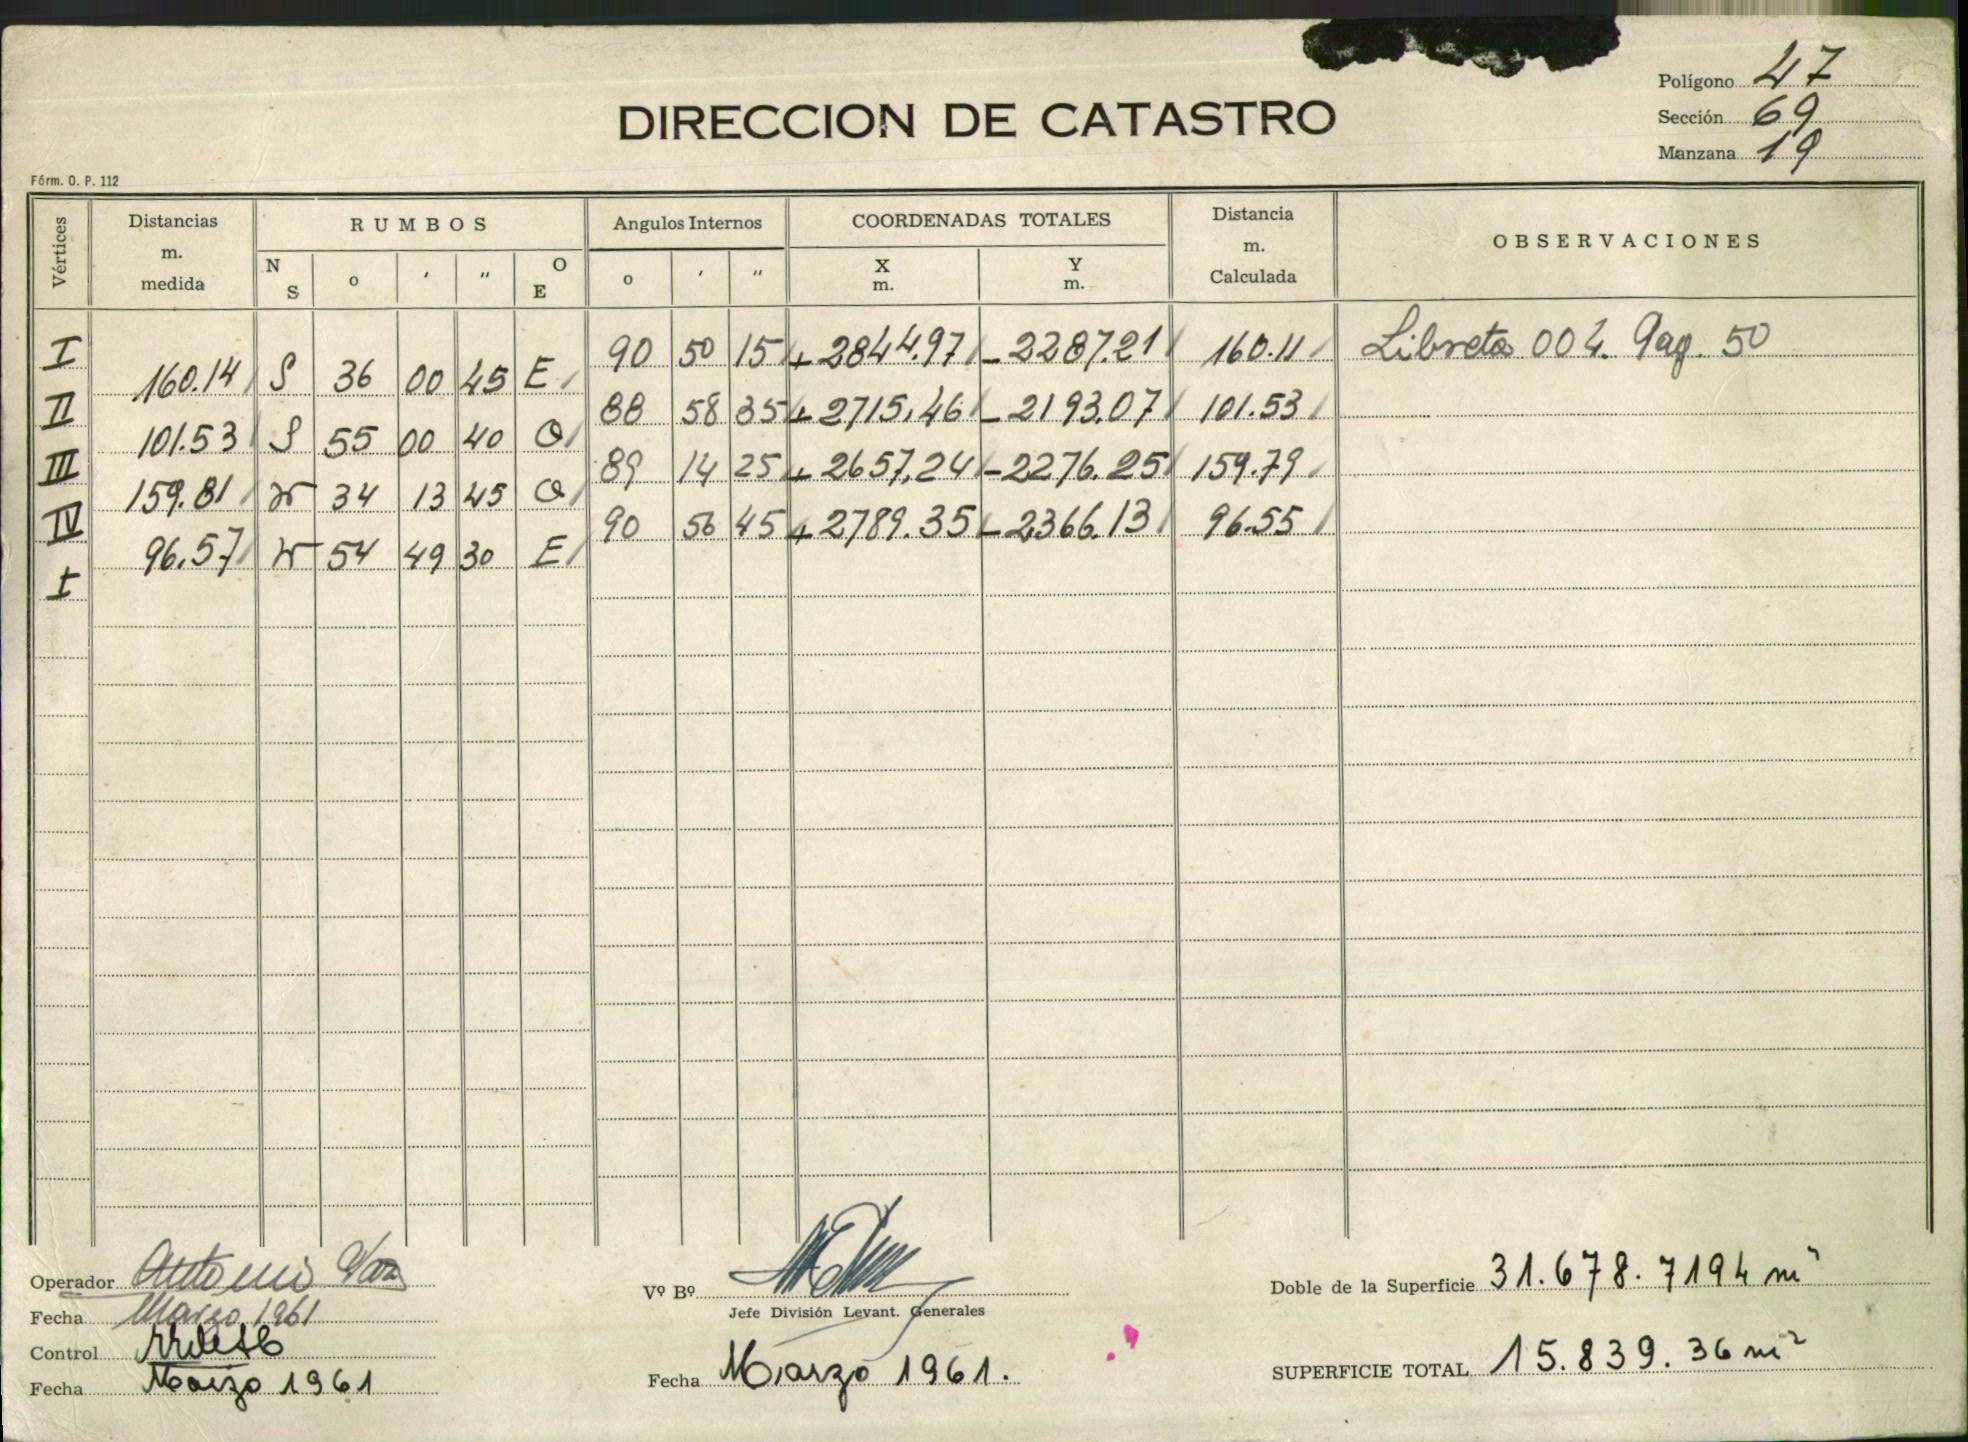 Polígono 47
DIRECCION DE CATASTRO
Sección 69
Manzana 19
Fórm. O. P. 112
Vértices
Distancias m. medida
RUMBOS
Angulos Internos
COORDENADAS TOTALES
Distancia m. Calculada
OBSERVACIONES
N S o ' " O E o ' " X m. Y m.
I 90 50 15 + 2844.97 - 2287.21 160.11 Libreta 004. Pag. 50
160.14 S 36 00 45 E
II 88 58 35 + 2715.46 - 2193.07 101.53
101.53 S 55 00 40 O
III 89 14 25 + 2657.24 - 2276.25 159.79
159.81 N 34 13 45 O
IV 90 56 45 + 2789.35 - 2366.13 96.55
96.57 N 54 49 30 E
I
Operador Antonio
Fecha Marzo 1961
Control
Fecha Marzo 1961
Vº Bº
Jefe División Levant. Generales
Fecha Marzo 1961.
Doble de la Superficie 31.678.7194 m²
SUPERFICIE TOTAL 15.839.36 m²